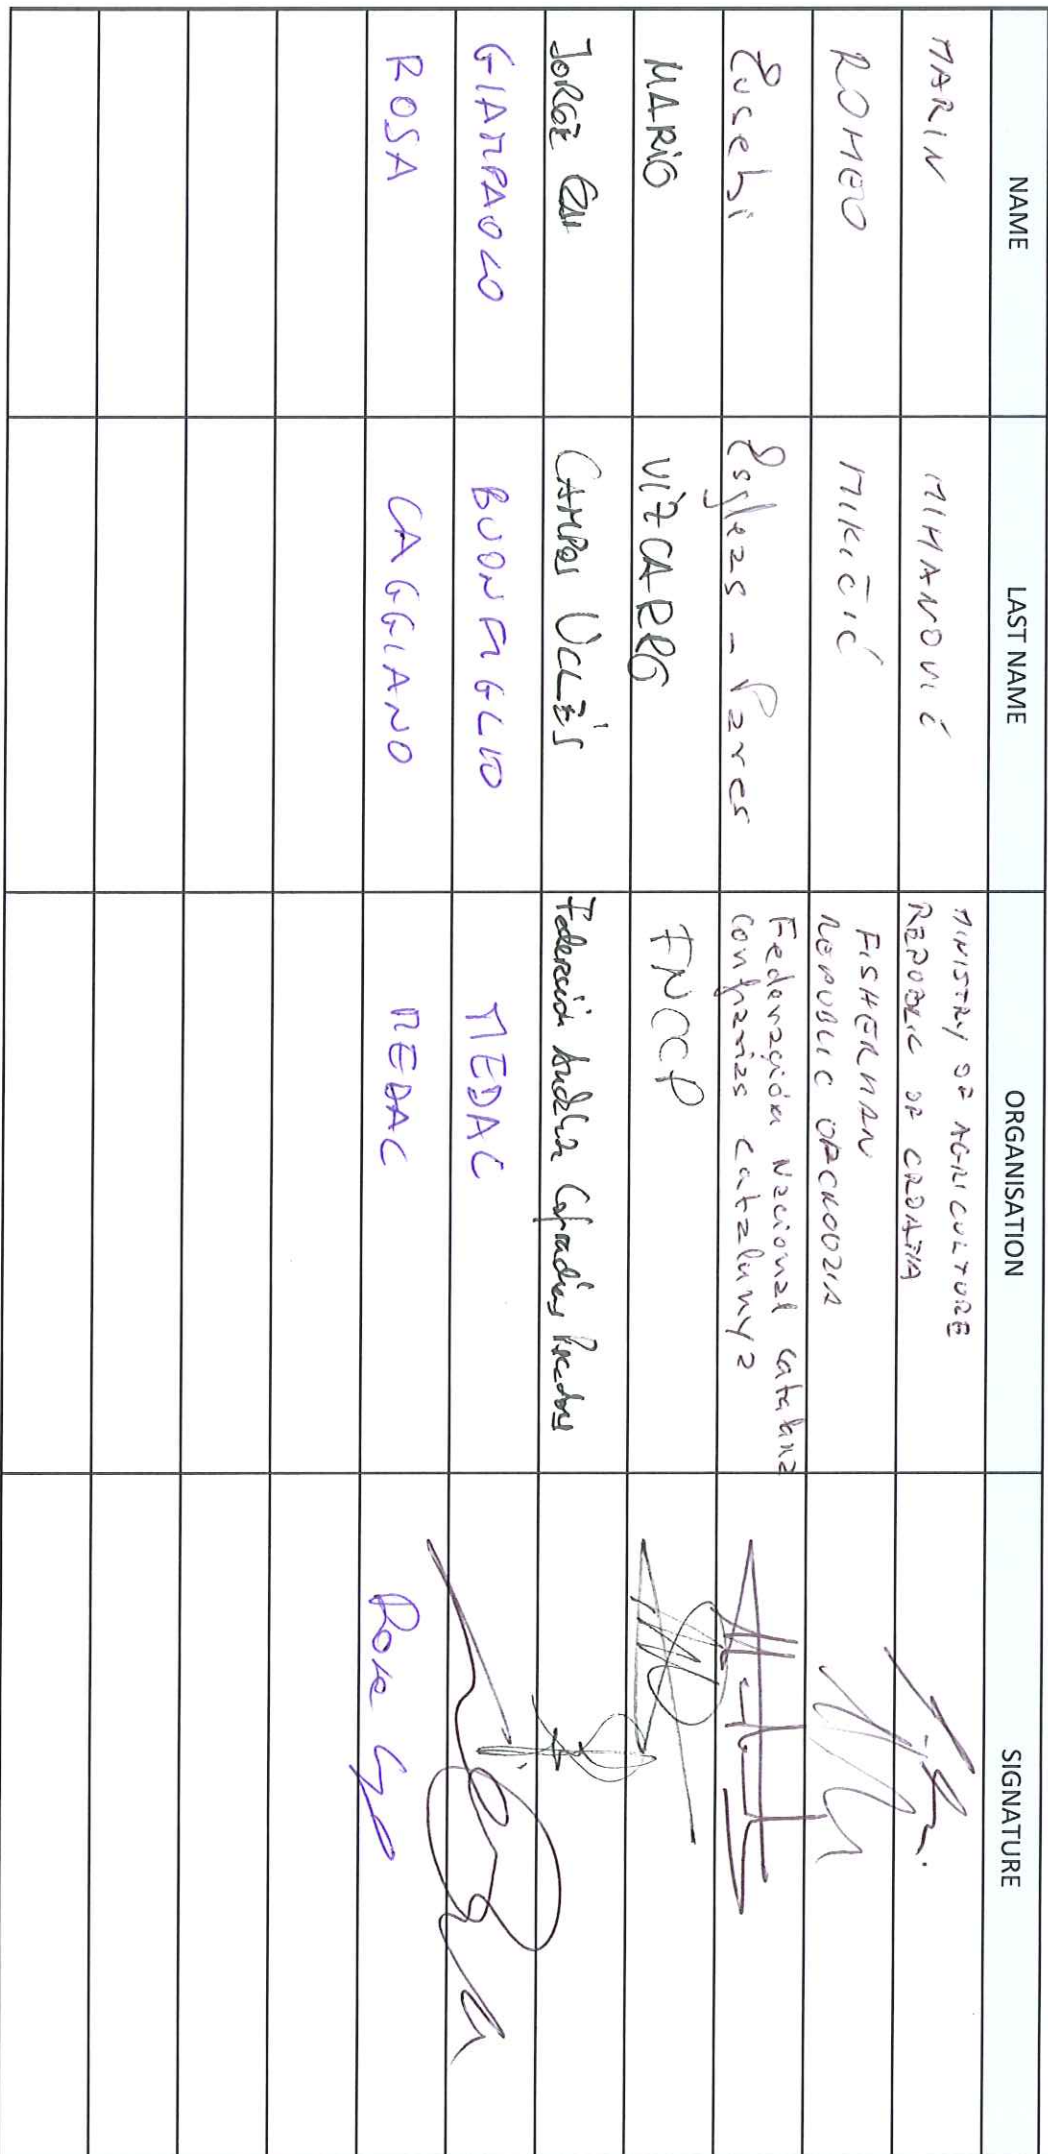 NAME LAST NAME ORGANISATION SIGNATURE
MARIN MIHANOVIĆ MINISTRY OF AGRICULTURE
REPUBLIC OF CROATIA
ROMEO MIKIČIĆ FISHERMAN
REPUBLIC OF
Eusebi Esgleas - Pares Federación Nacional Catalana
Confrarias Catalunya
MARIO VIZCARRO FNCCP
JORGE CAMPOS UCLÉS Federación Andaluza Cofradías Pescadores
GIAMPAOLO BUONFIGLIO MEDAC
ROSA CAGGIANO MEDAC Rosa